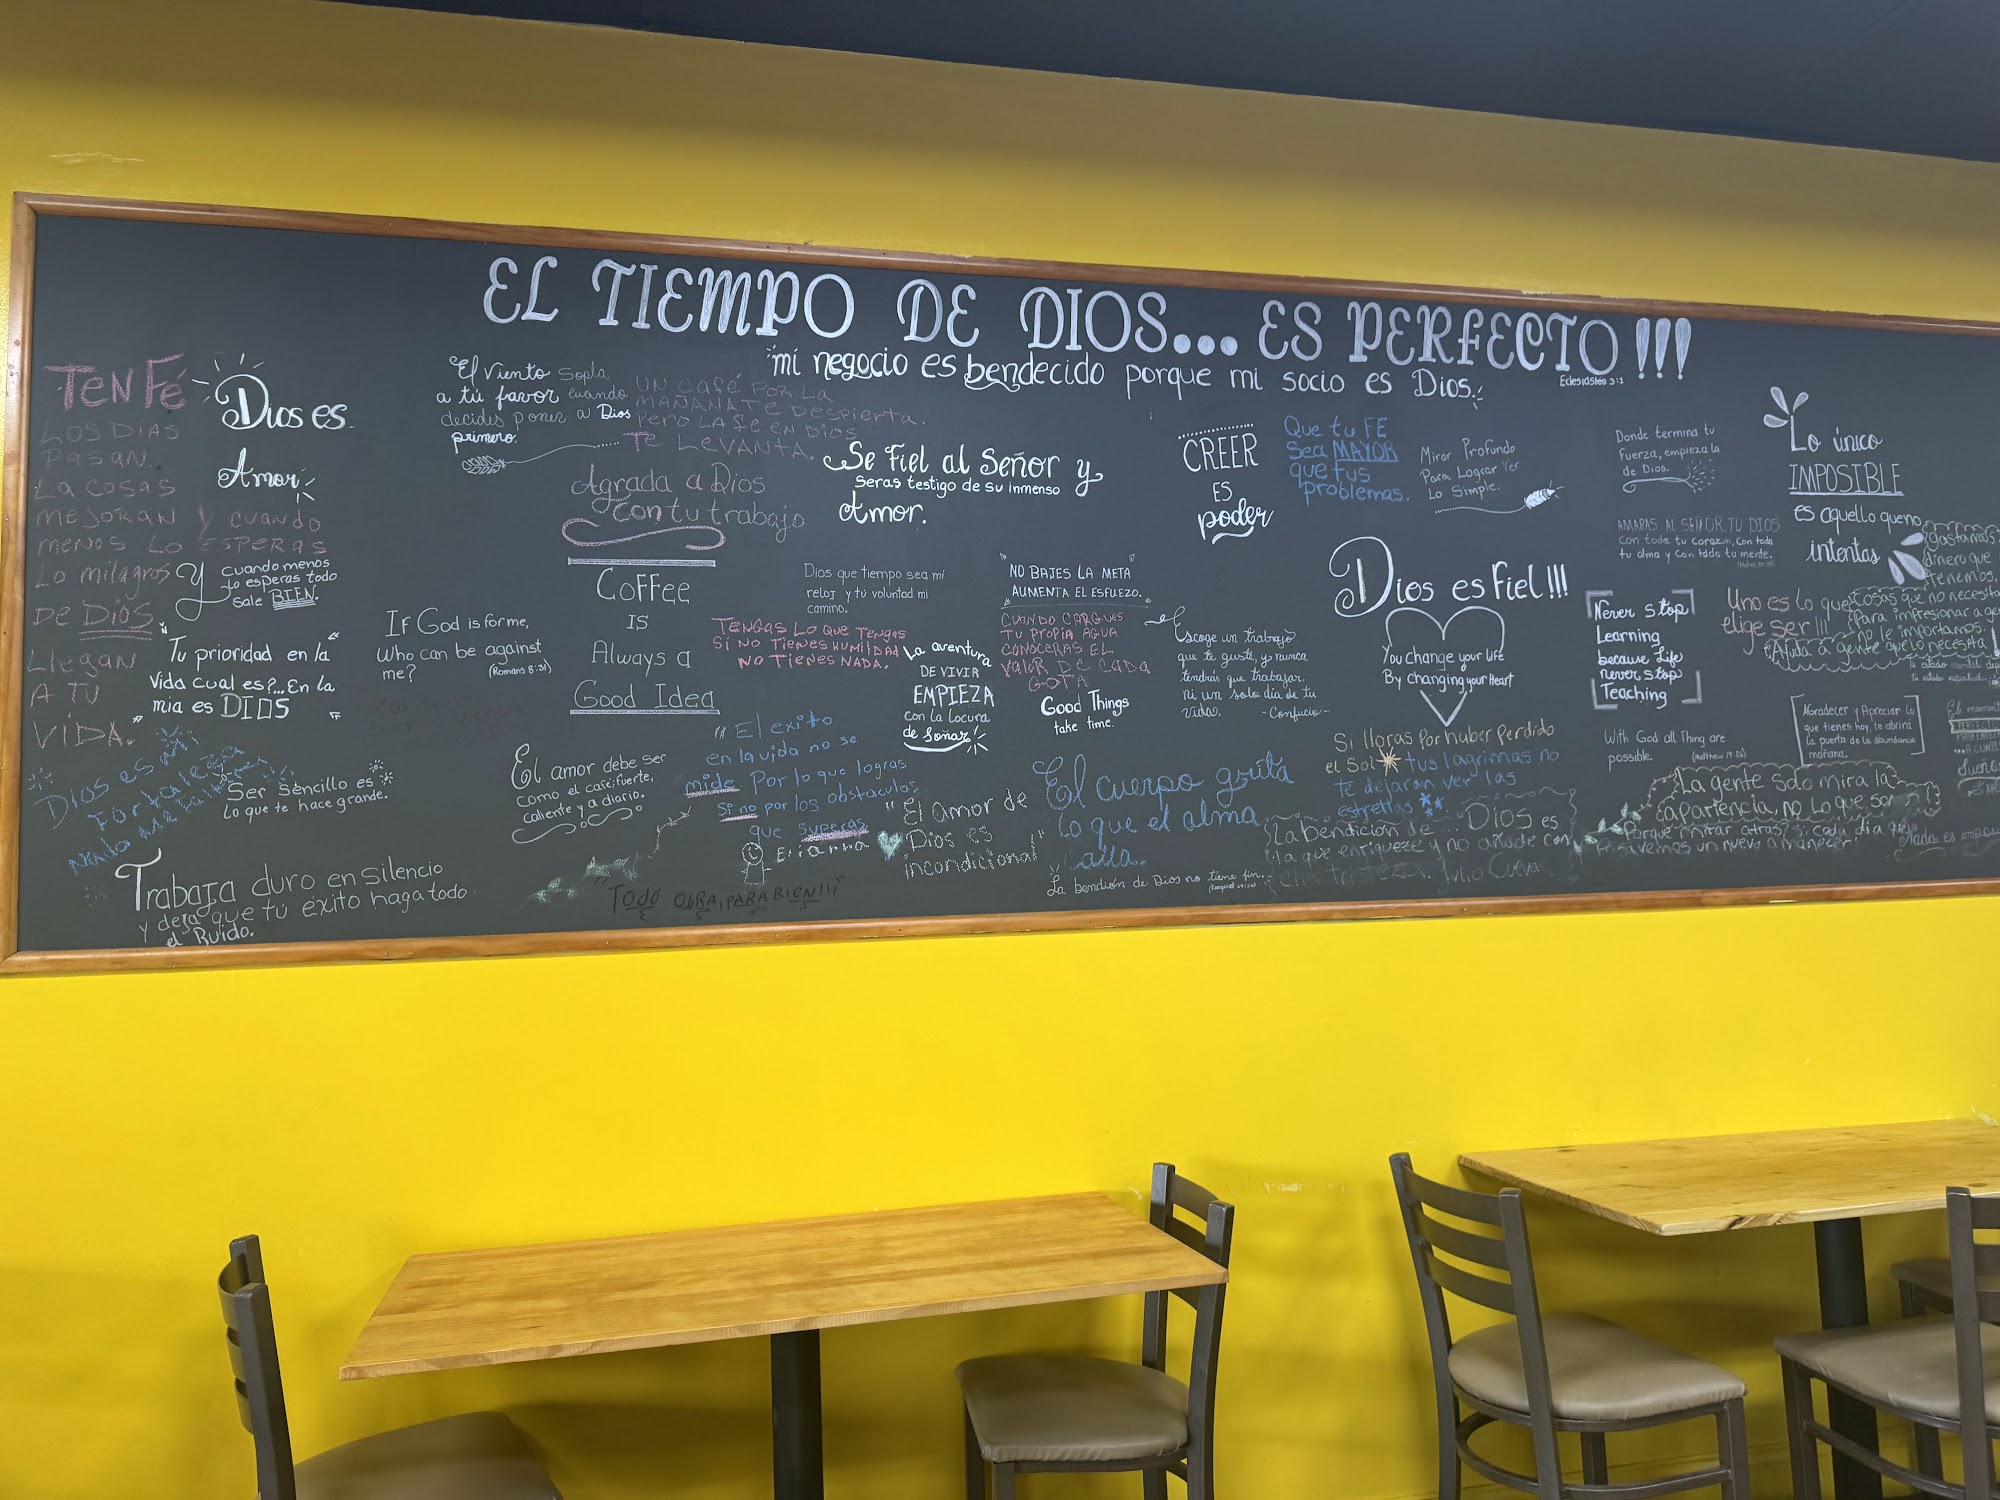 EL TIEMPO DE DIOS... ES PERFECTO!!!
Eclesiastés 3:1
"mi negocio es bendecido porque mi socio es Dios.
TEN FÉ
LOS DIAS
PASAN.
LA COSAS
MEJORAN Y CUANDO
MENOS LO ESPERAS
LO milagros
DE DIOS
LLEGAN
A TU
VIDA.
Dios es
Amor
Y cuando menos
lo esperas todo
sale BIEN.
"Tu prioridad en la
vida cual es?...En la
mia es DIOS"
Dios es mi
Fortaleza
Ser sencillo es
lo que te hace grande.
Trabaja duro en silencio
y deja que tú éxito haga todo
el Ruido.
El viento sopla
a tú favor cuando
decides poner a Dios
primero.
UN CAFÉ POR LA
MAÑANA TE DESPIERTA.
PERO LA fe EN DIOS
TE LEVANTA.
Agrada a Dios
con tu trabajo
If God is for me,
who can be against
me?
(Romans 8:31)
COFFEE
IS
Always a
Good Idea
El amor debe ser
como el café; fuerte,
caliente y a diario.
Se fiel al Señor y
Seras testigo de su inmenso
Amor.
Dios que tiempo sea mí
reloj y tú voluntad mi
camino.
TENGAS LO QUE TENGAS
SI NO TIENES HUMILDAD
NO TIENES NADA.
"El exito
en la vida no se
mide Por lo que logras
si no por los obstaculos
que superas
"TODO OBRA, PARA BIEN!!!"
La aventura
DE VIVIR
EMPIEZA
con la locura
de soñar
"El Amor de
Dios es
incondicional"
"NO BAJES LA META
AUMENTA EL ESFUEZO.
CUANDO CARGUES
TU PROPIA AGUA
CONOCERAS EL
VALOR DE CADA
GOTA
Good Things
take time.
El cuerpo grita
lo que el alma
calla.
La bendición de Dios no tiene fin.
CREER
ES
poder
Escoge un trabajo
que te guste, y nunca
tendrás que trabajar.
ni un solo día de tu
vida.
-Confucio-
Que tu FE
Sea MAYOR
que tus
problemas.
Mirar Profundo
Para Lograr Ver
Lo Simple.
Dios es Fiel!!!
You change your life
By changing your Heart
Si lloras por haber Perdido
el Sol tus lagrimas no
te dejaran ver las
estrellas
La bendición de... Dios es
la que enriqueze y no añade con
ella tristeza. Julio Cuevas.
Donde termina tu
fuerza, empieza la
de Dios.
AMARAS AL SEÑOR, TU DIOS
con toda tu corazón, con toda
tu alma y con toda tu mente.
Never stop
Learning
because Life
never stop
Teaching
With God all Thing are
possible.
(Matthew 19:26)
Lo único
IMPOSIBLE
es aquello que no
intentas
Uno es lo que
elige ser!!!
Gastamos
dinero que
tenemos.
Cosas que no necesita
Para impresionar a
no le importamos.
Ayuda a gente que lo necesita
Agradecer y Apreciar lo
que tienes hoy, te abrirá
la puerta de la abundancia
mañana.
La gente solo mira la
apariencia, no lo que somos
Porque mirar atras, si cada dia que
pasa vemos un nuevo amanecer
Sueños